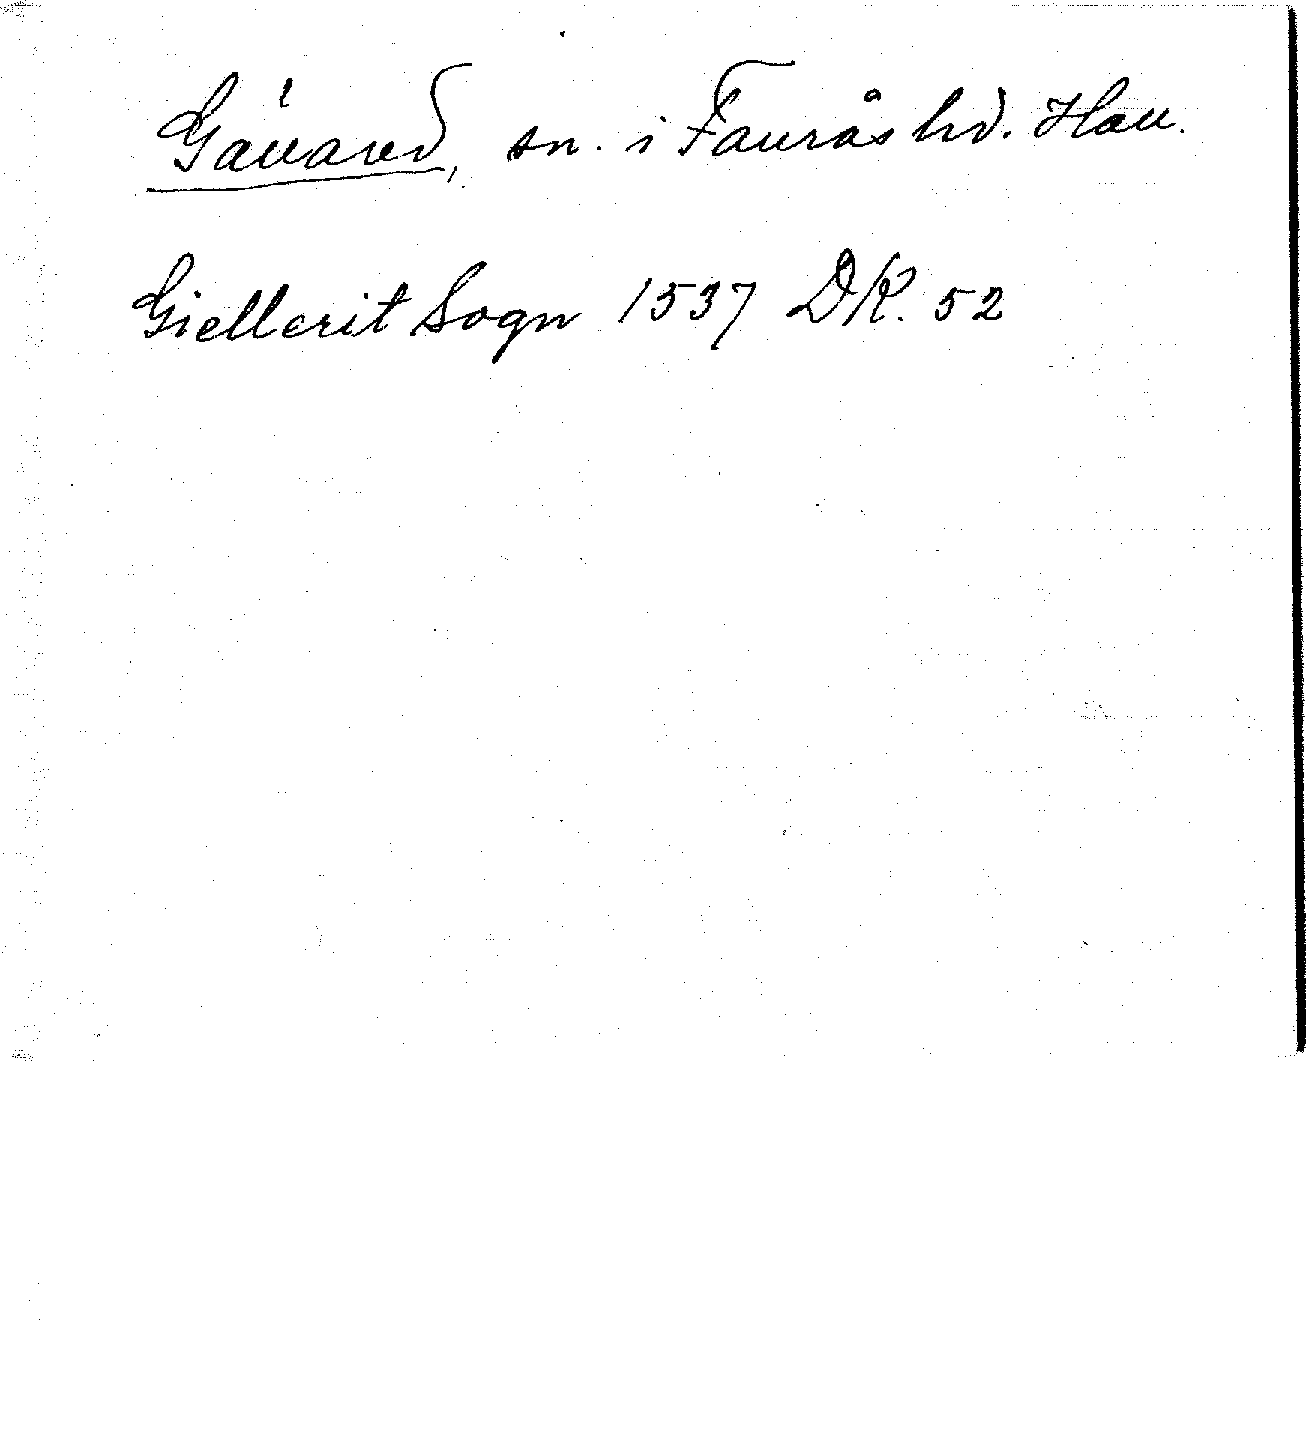 Gällared, sn. i Faurås hd. Hall.
Giellerit Sogn 1537 DK. 52